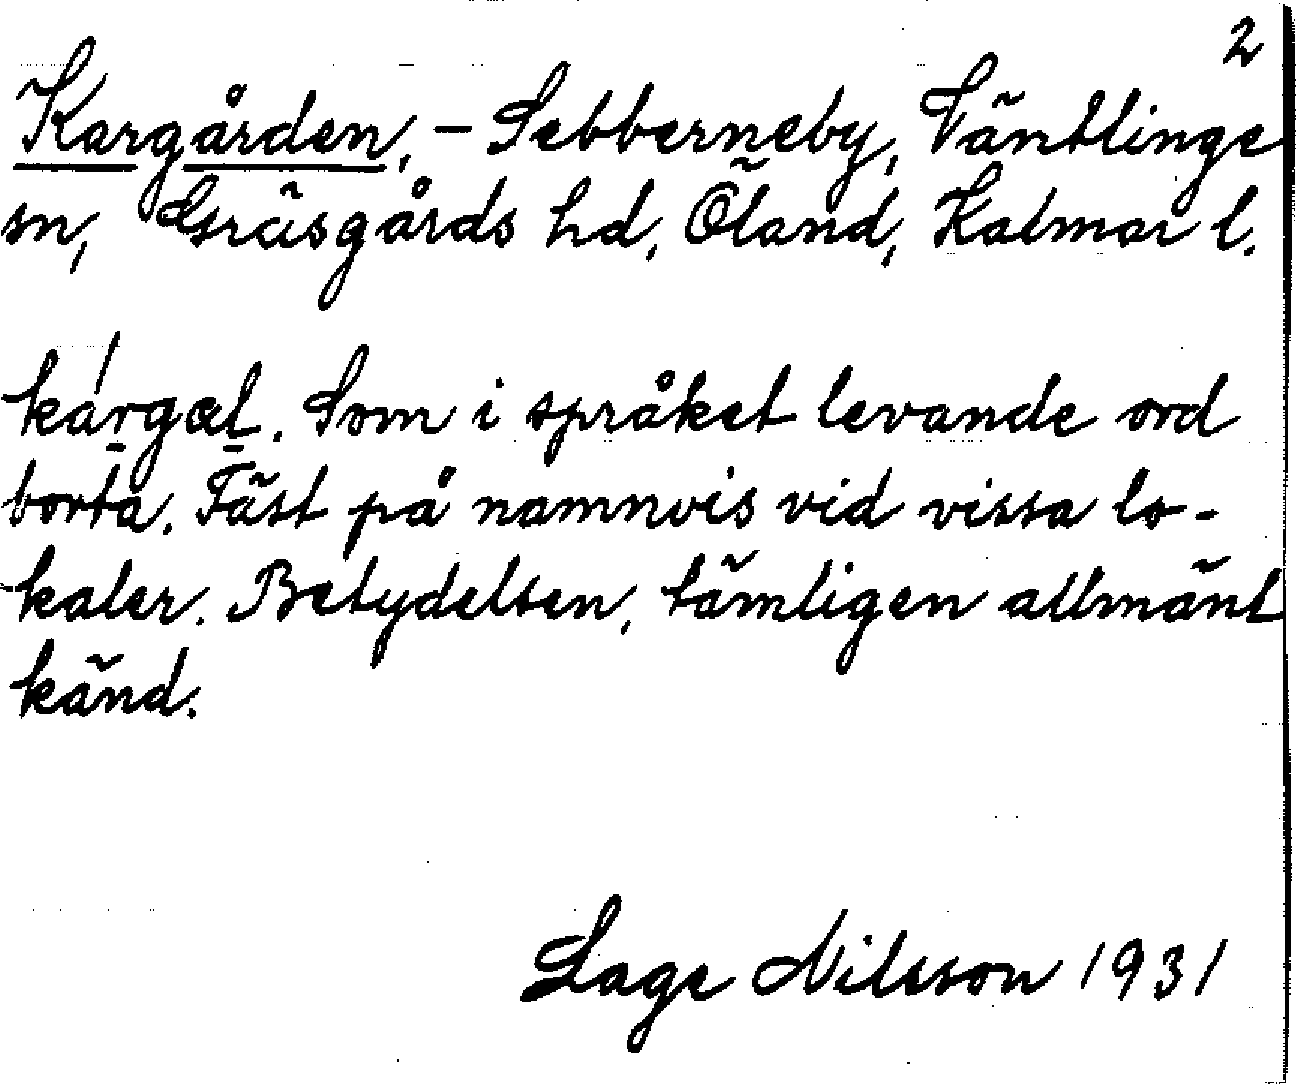 2
Kargården, - Sebberneby, Väntlinge
sn, Gräsgårds hd, Öland, Kalmar l.
kargæl. Som i språket levande ord
borta. Fäst på namnvis vid vissa lo-
kaler. Betydelsen, tämligen allmänt
känd.
Lage Nilsson 1931